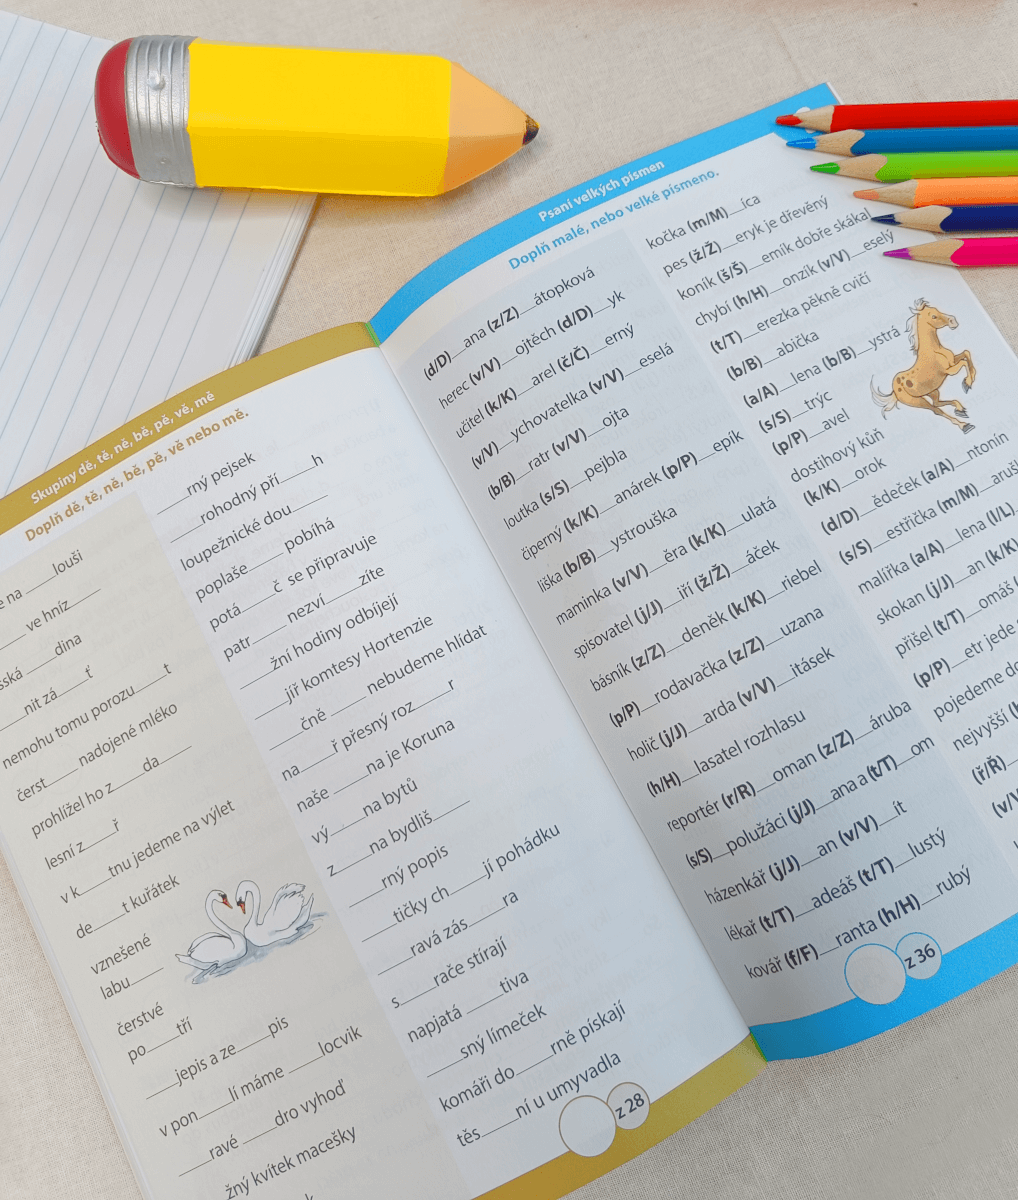 Skupiny dě, tě, ně, bě, pě, vě, mě
Doplň dě, tě, ně, bě, pě, vě nebo mě.
na ___louši
___ ve hníz___
___dina
___nit zá___ť
nemohu tomu porozu___t
čerst___ nadojené mléko
prohlížel ho z___da___
lesní z___ř
v k___tnu jedeme na výlet
de___t kuřátek
vznešené
labu___
čerstvé
po___tří
___jepis a ze___pis
v pon___lí máme ___locvik
___ravé ___dro vyhoď
___žný kvítek macešky
___rný pejsek
___rohodný pří___h
loupežnické dou___
poplaše___ pobíhá
potá___č se připravuje
patr___ nezví___zíte
___žní hodiny odbíjejí
___jíř komtesy Hortenzie
___čně ___ nebudeme hlídat
na___ř přesný roz___r
naše ___na je Koruna
vý___na bytů
z___na bydliš___
___rný popis
___tičky ch___jí pohádku
___ravá zás___ra
s___rače stírají
napjatá ___tiva
___sný límeček
komáři do___rně pískají
těs___ní u umyvadla
z 28
Psaní velkých písmen
Doplň malé, nebo velké písmeno.
(d/D)__ana (z/Z)__átopková
herec (v/V)__ojtěch (d/D)__yk
učitel (k/K)__arel (č/Č)__erný
(v/V)__ychovatelka (v/V)__eselá
(b/B)__ratr (v/V)__ojta
loutka (s/S)__pejbla
čiperný (k/K)__anárek (p/P)__epík
liška (b/B)__ystrouška
maminka (v/V)__ěra (k/K)__ulatá
spisovatel (j/J)__iří (ž/Ž)__áček
básník (z/Z)__deněk (k/K)__riebel
(p/P)__rodavačka (z/Z)__uzana
holič (j/J)__arda (v/V)__itásek
(h/H)__lasatel rozhlasu
reportér (r/R)__oman (z/Z)__áruba
(s/S)__polužáci (j/J)__ana a (t/T)__om
házenkář (j/J)__an (v/V)__ít
lékař (t/T)__adeáš (t/T)__lustý
kovář (f/F)__ranta (h/H)__rubý
kočka (m/M)__íca
pes (ž/Ž)__eryk je dřevěný
koník (š/Š)__emík dobře skákal
chybí (h/H)__onzík (v/V)__eselý
(t/T)__erezka pěkně cvičí
(b/B)__abička
(a/A)__lena (b/B)__ystrá
(s/S)__trýc
(p/P)__avel
dostihový kůň
(k/K)__orok
(d/D)__ědeček (a/A)__ntonín
(s/S)__estřička (m/M)__
malířka (a/A)__lena (l/L)
skokan (j/J)__an (k/K)
přišel (t/T)__omáš
(p/P)__etr jede
pojedeme
nejvyšší
(ř/Ř)__
(v/V)
z 36